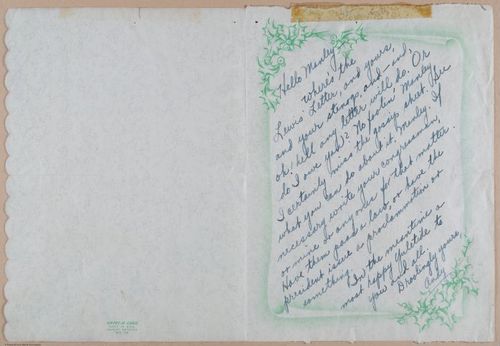 Hello Manley
Where's the
Lewis' Letter, and yours,
and your stenogs, and - and,
oh! hell any letter will do. Or
do I owe you? No foolin' Manley
I certainly miss the gossip sheet. See
what you can do about it, Manley. If
necessary write your congressman,
or mine or anyones for that matter.
Have them pass a law or have the
president issue a proclammation or
something.
In the meantime a
most happy Yuletide to
you and all.
yours,